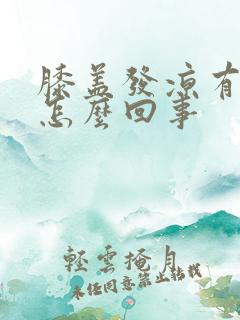 膝盖發凉有
怎麼回事
輕雲掩月
未经同意禁止转载